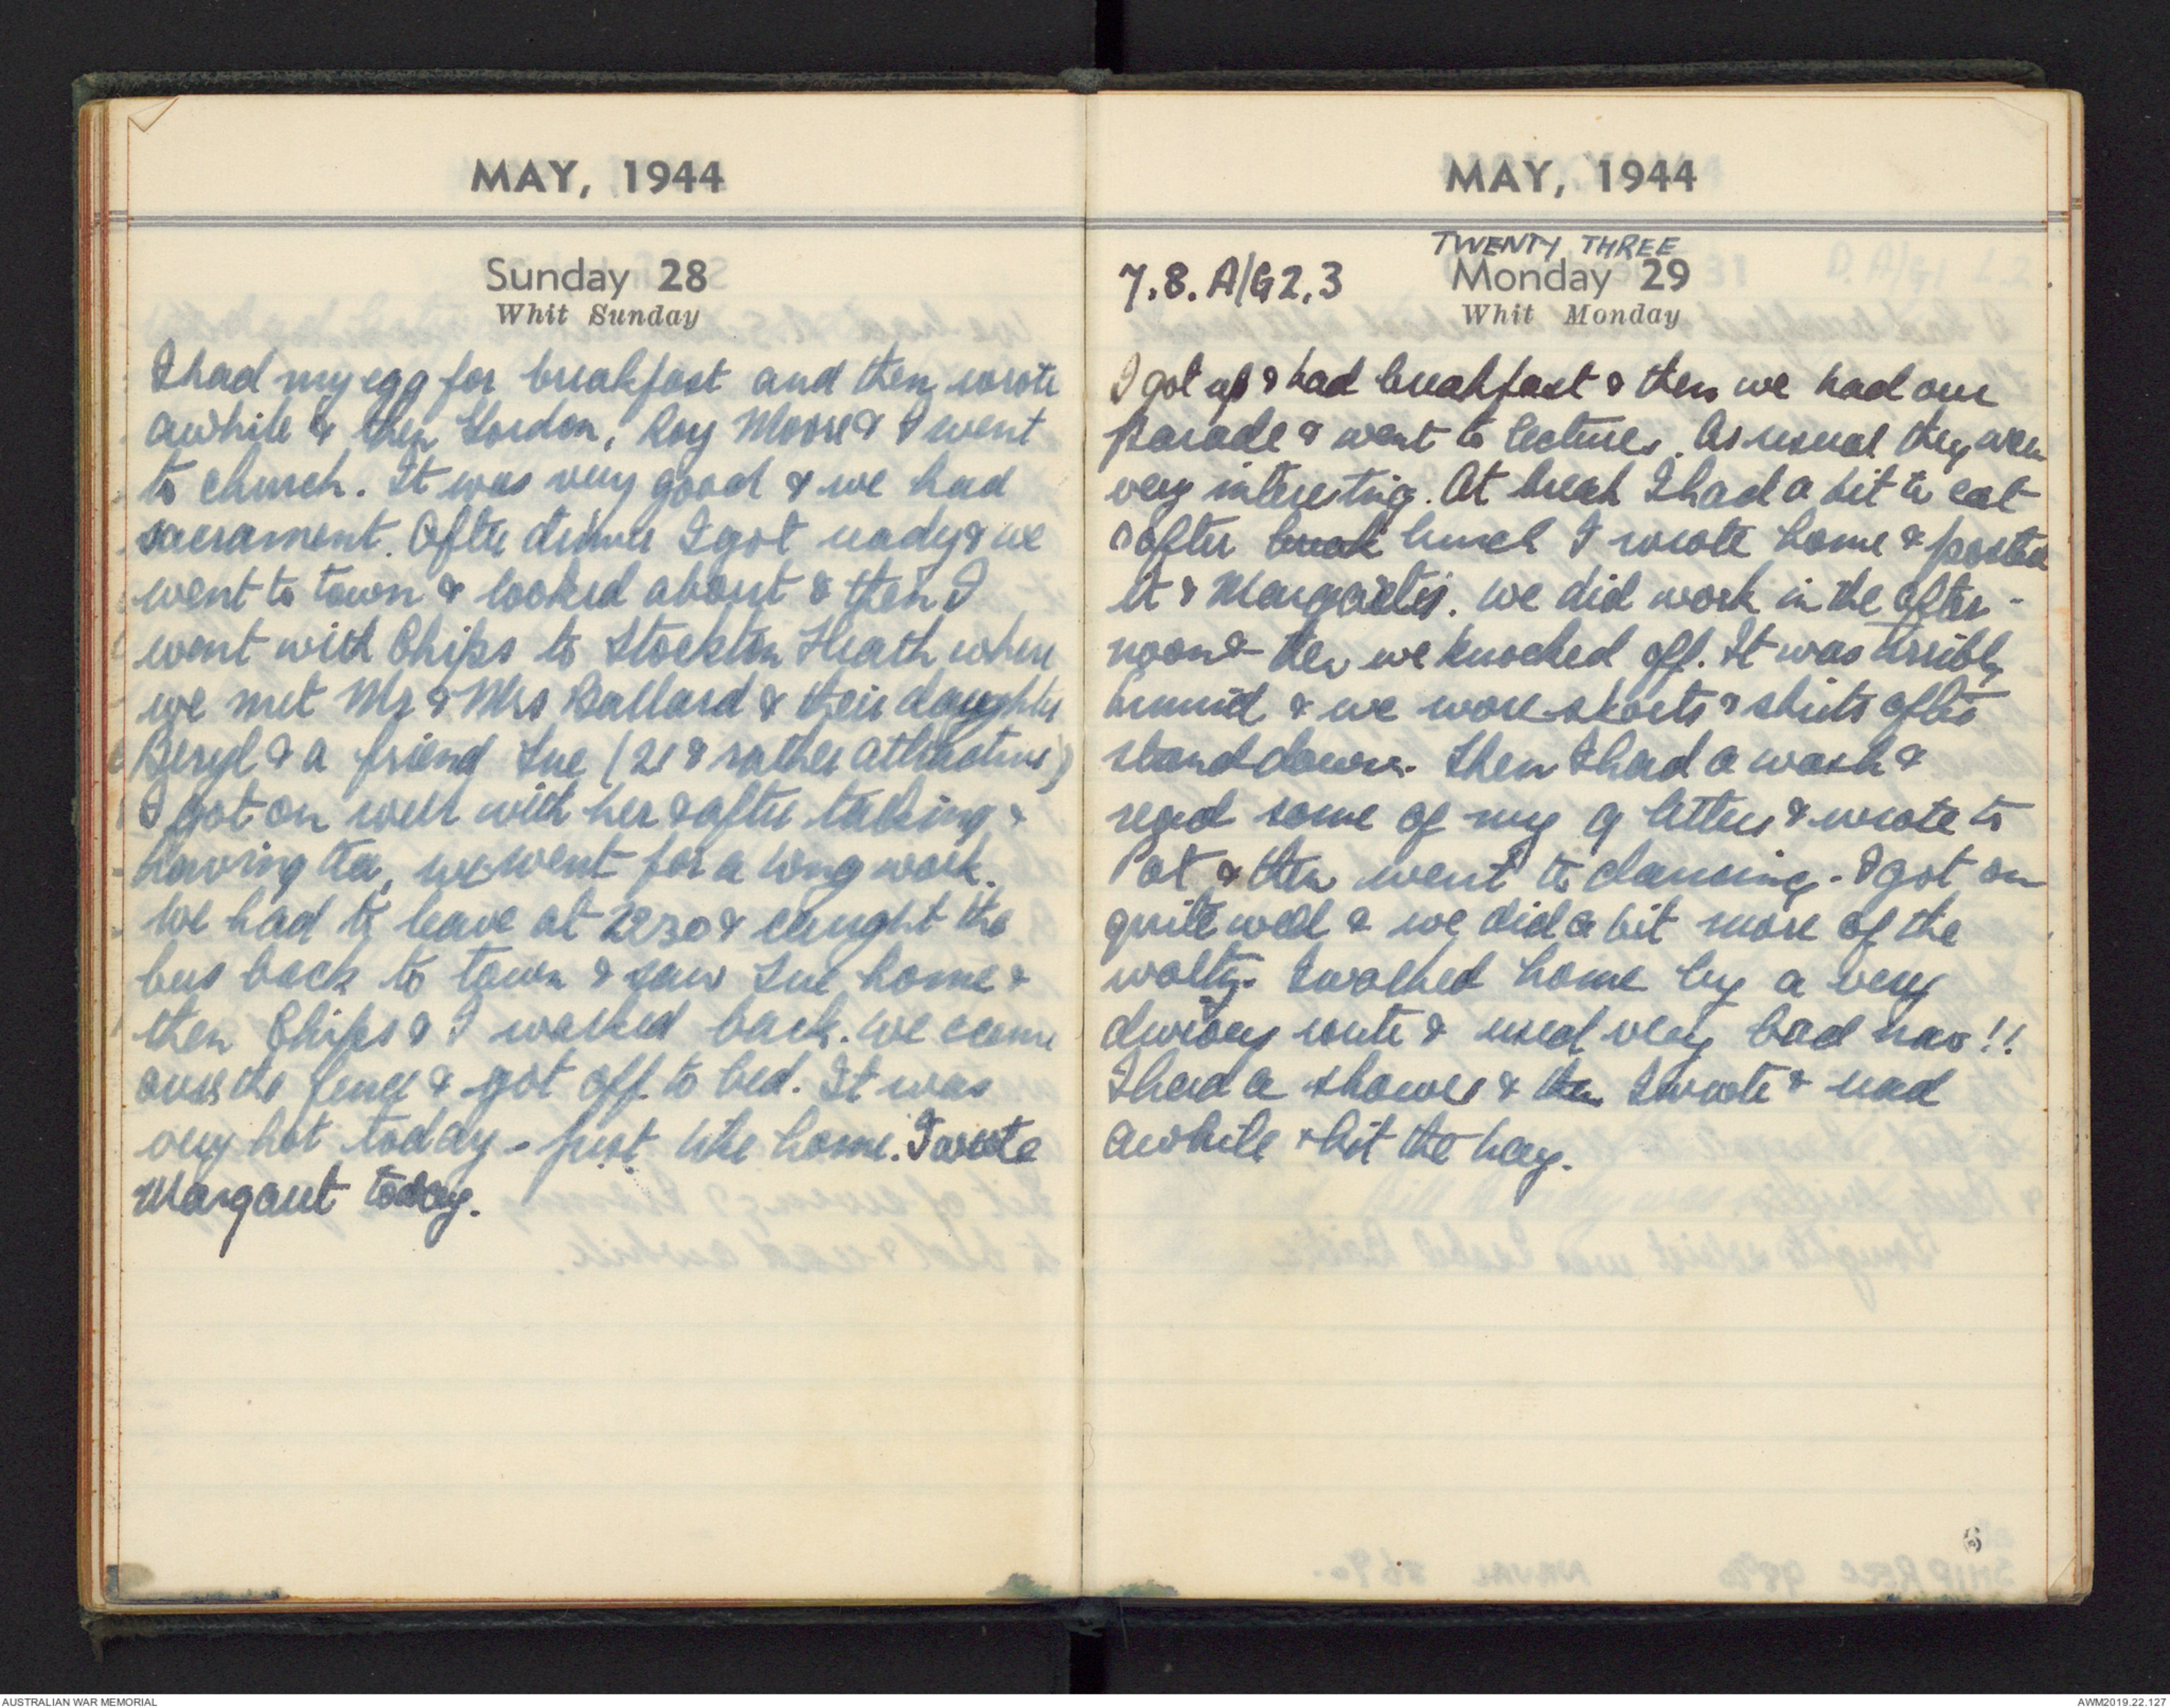 MAY, 1944
Sunday 28
Whit Sunday
I had my egg for breakfast and then wrote
awhile & then Gordon, Roy Moore & I went
to church. It was very good & we had
sacrament. After dinner I got ready & we
went to town & looked about & then I
went with Chips to Stockton Heath where
we met Mr & Mrs Ballard & their daughter
Beryl & a friend Sue (21 & rather attractive)
I got on well with her & after talking &
having tea, we went for a long walk.
We had to leave at 2230 & caught the
bus back to town & saw Sue home &
then Chips & I walked back. We came
over the fence & got off to bed. It was
very hot today - just like home. I wrote
Margaret today.
MAY, 1944
TWENTY THREE
7.8. A/G 2.3
Monday 29
Whit Monday
I got up & had breakfast & then we had our
parade & went to lectures. As usual they were
very interesting. At break I had a bit to eat
& after break lunch I wrote home & posted
it & Margaret's. We did work in the after-
noon & then we knocked off. It was terribly
humid & we wore shorts & shirts after
stand down. Then I had a wash &
read some of my 9 letters & wrote to
Pat & then went to dancing. I got on
quite well & we did a bit more of the
waltz. I walked home by a very
devious route & used very bad nav!!
I had a shower & then I wrote & read
awhile & hit the hay.
6
AUSTRALIAN WAR MEMORIAL
AWM2019.22.127